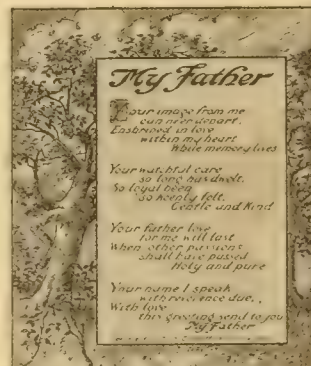 My Father
Your image from me
can never depart.
Enshrined in love
within my heart
While memory lives
Your watchful care
so long has dwelt.
So loyal been
so keenly felt.
Gentle and Kind
Your father love
for me will last
When other passions
shall have passed
Holy and pure
Your name I speak
with reverence due,
With love
this greeting send to you
My Father